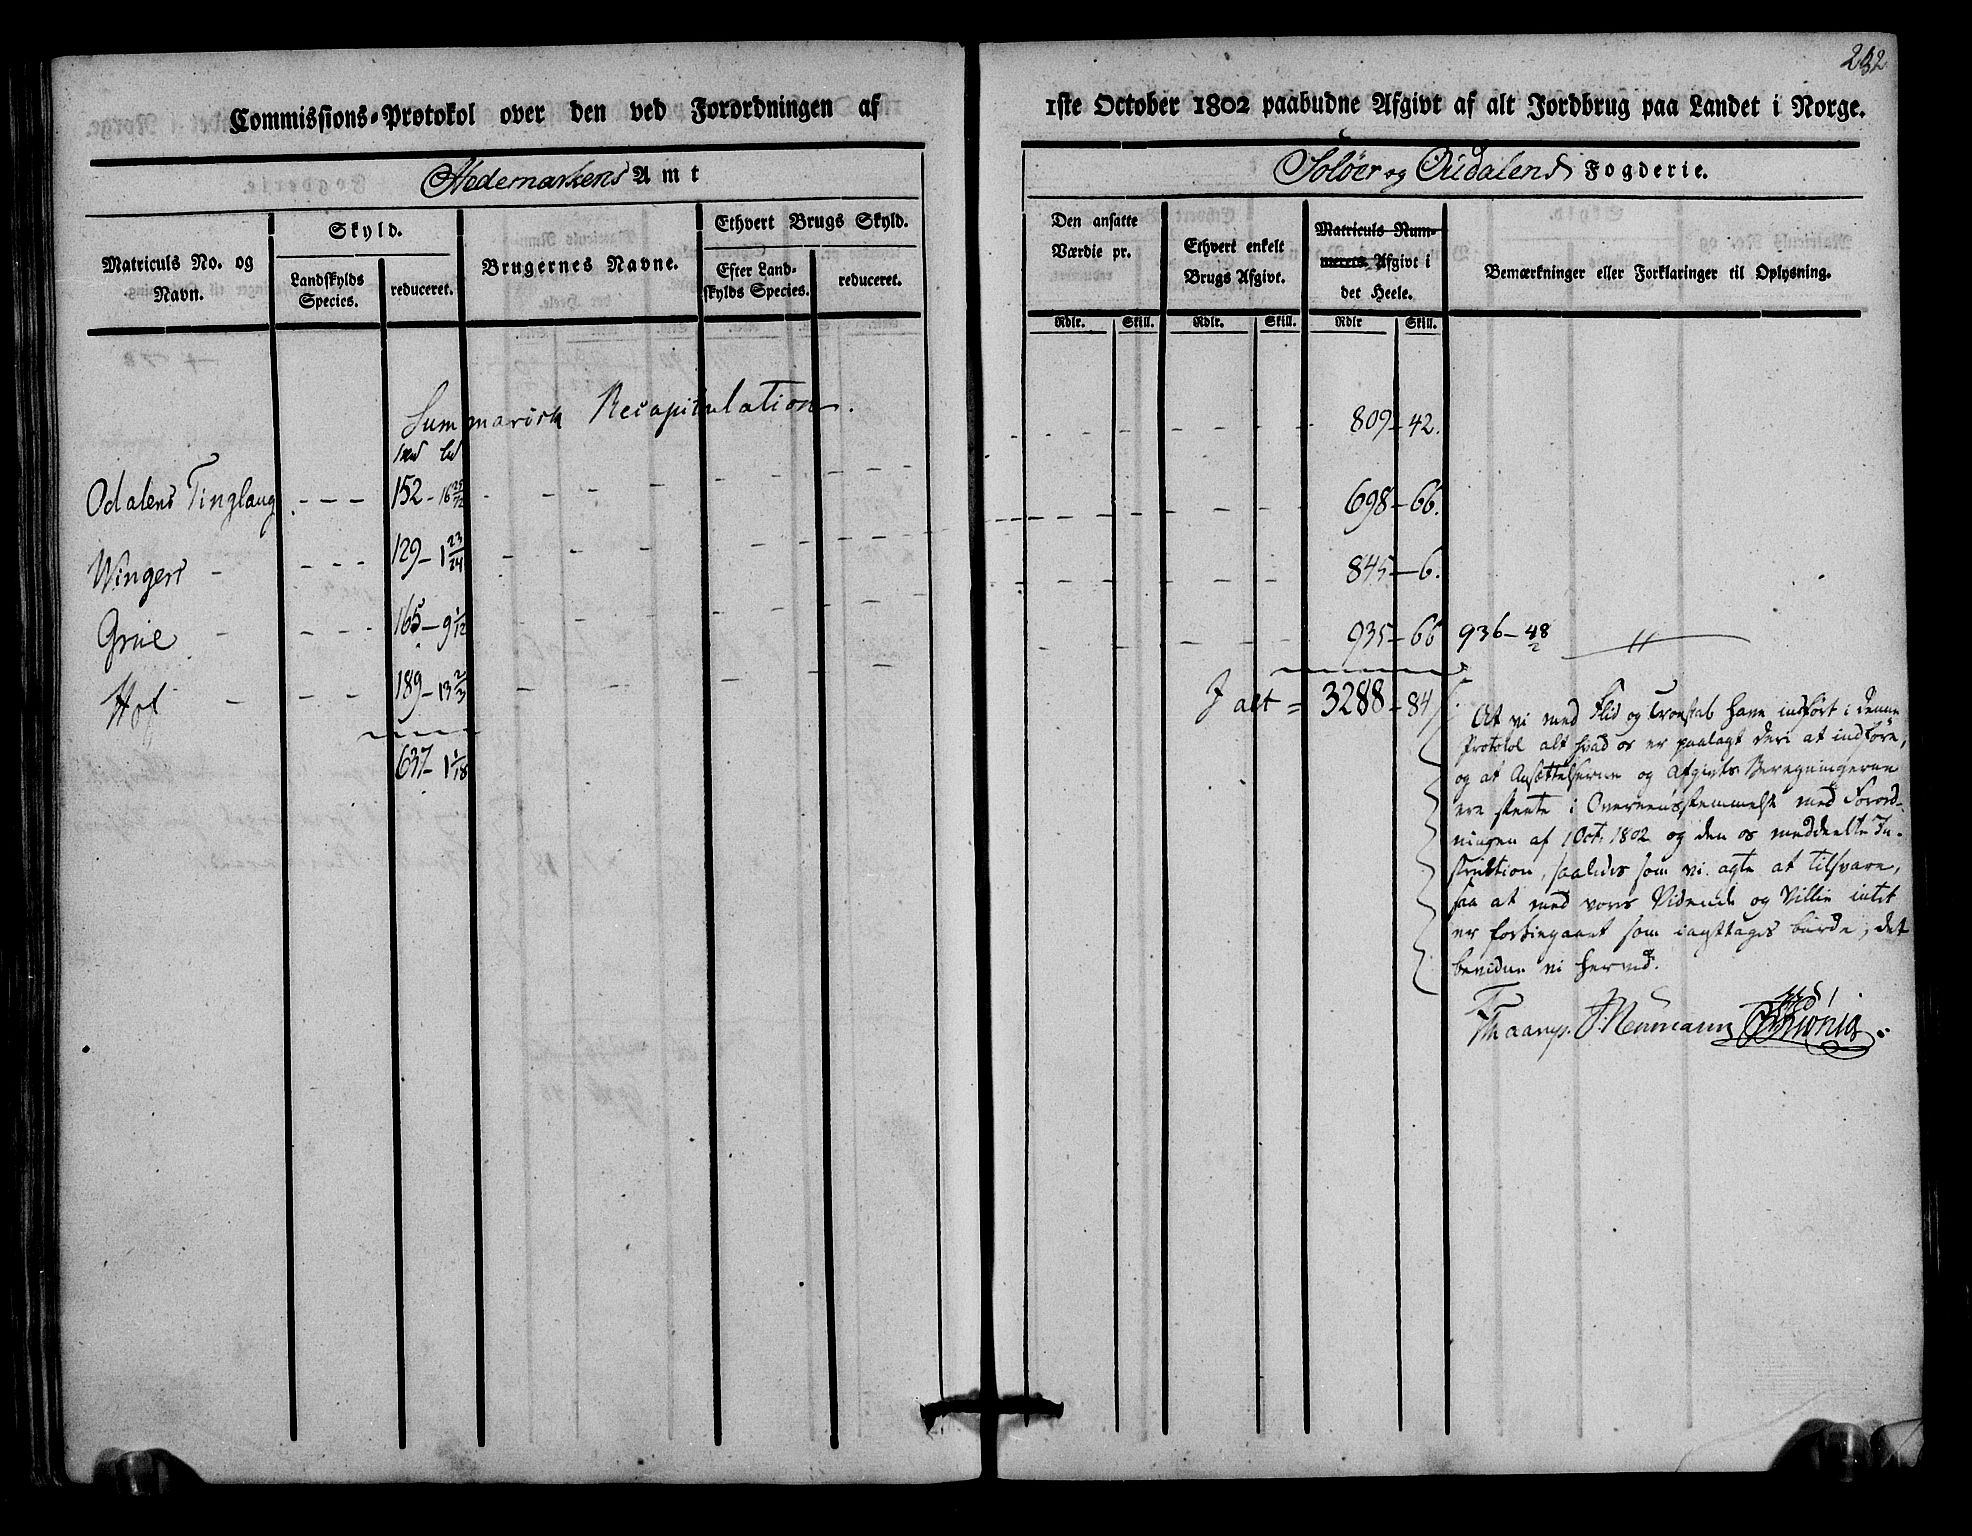 232
Commissions-Protokol over den ved Forordningen af 1ste October 1802 paabudne Afgivt af alt Jordbrug paa Landet i Norge.
Hedemarkens Amt
Soløer og Oudalens Fogderie.
Matriculs No. og Navn.
Skyld.
Landskylds Species.
reduceret.
Brugernes Navne.
Ethvert Brugs Skyld.
Efter Landskylds Species.
reduceret.
Den ansatte Værdie pr.
Ethvert enkelt Brugs Afgivt.
Matriculs Nummerets Afgivt i det Heele.
Bemærkninger eller Forklaringer til Oplysning.
Rdlr. Skill. Rdlr. Skill. Rdlr Skill.
Summarisk Recapitulation.
Odalens Tinglaug - - - 152 - 16 25/72 - - - 809 - 42.
Wingers - - - - 129 - 1 23/24 - - - 698 - 66.
Grue - - - - 165 - 9 1/12 - - - 845 - 6.
Hof - - - 189 - 13 2/3 - - - 935 - 66 936 - 48
637 - 1 1/18
I alt = 3288 - 84
At vi med Flid og Troeskab have indført i denne
Protokol alt hvad os er paalagt deri at indføre,
og at Ansættelserne og Afgivts Beregningerne
ere skeete i Overeensstemmelse med Forord-
ningen af 1 Oct. 1802 og den os meddeelte In-
struction, saaledes som vi agte at tilsvare,
saa at med vores Vidende og Villie intet
er forbiegaaet som iagttages burde, det
bevidne vi herved.
Thaarup. Neumann